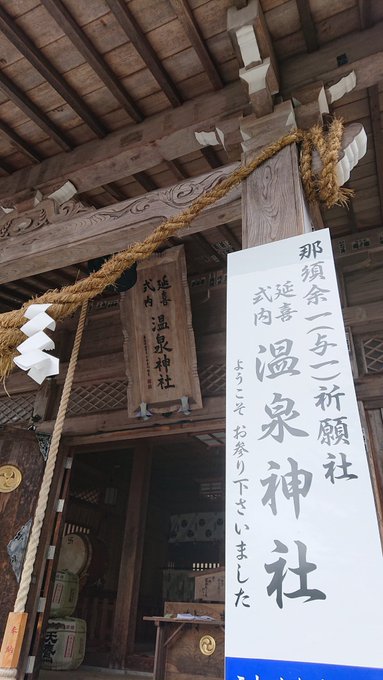 那須余一(与一)祈願社
延喜
式内
温泉神社
ようこそ お参り下さいました
延喜
式内
温泉神社
奉納